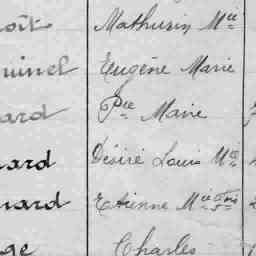 oît Mathurin Mie
uinel Eugène Marie
ard Pre Marie
uard Désiré Louis Mie
uard Etienne Mie Fois
ge Charles